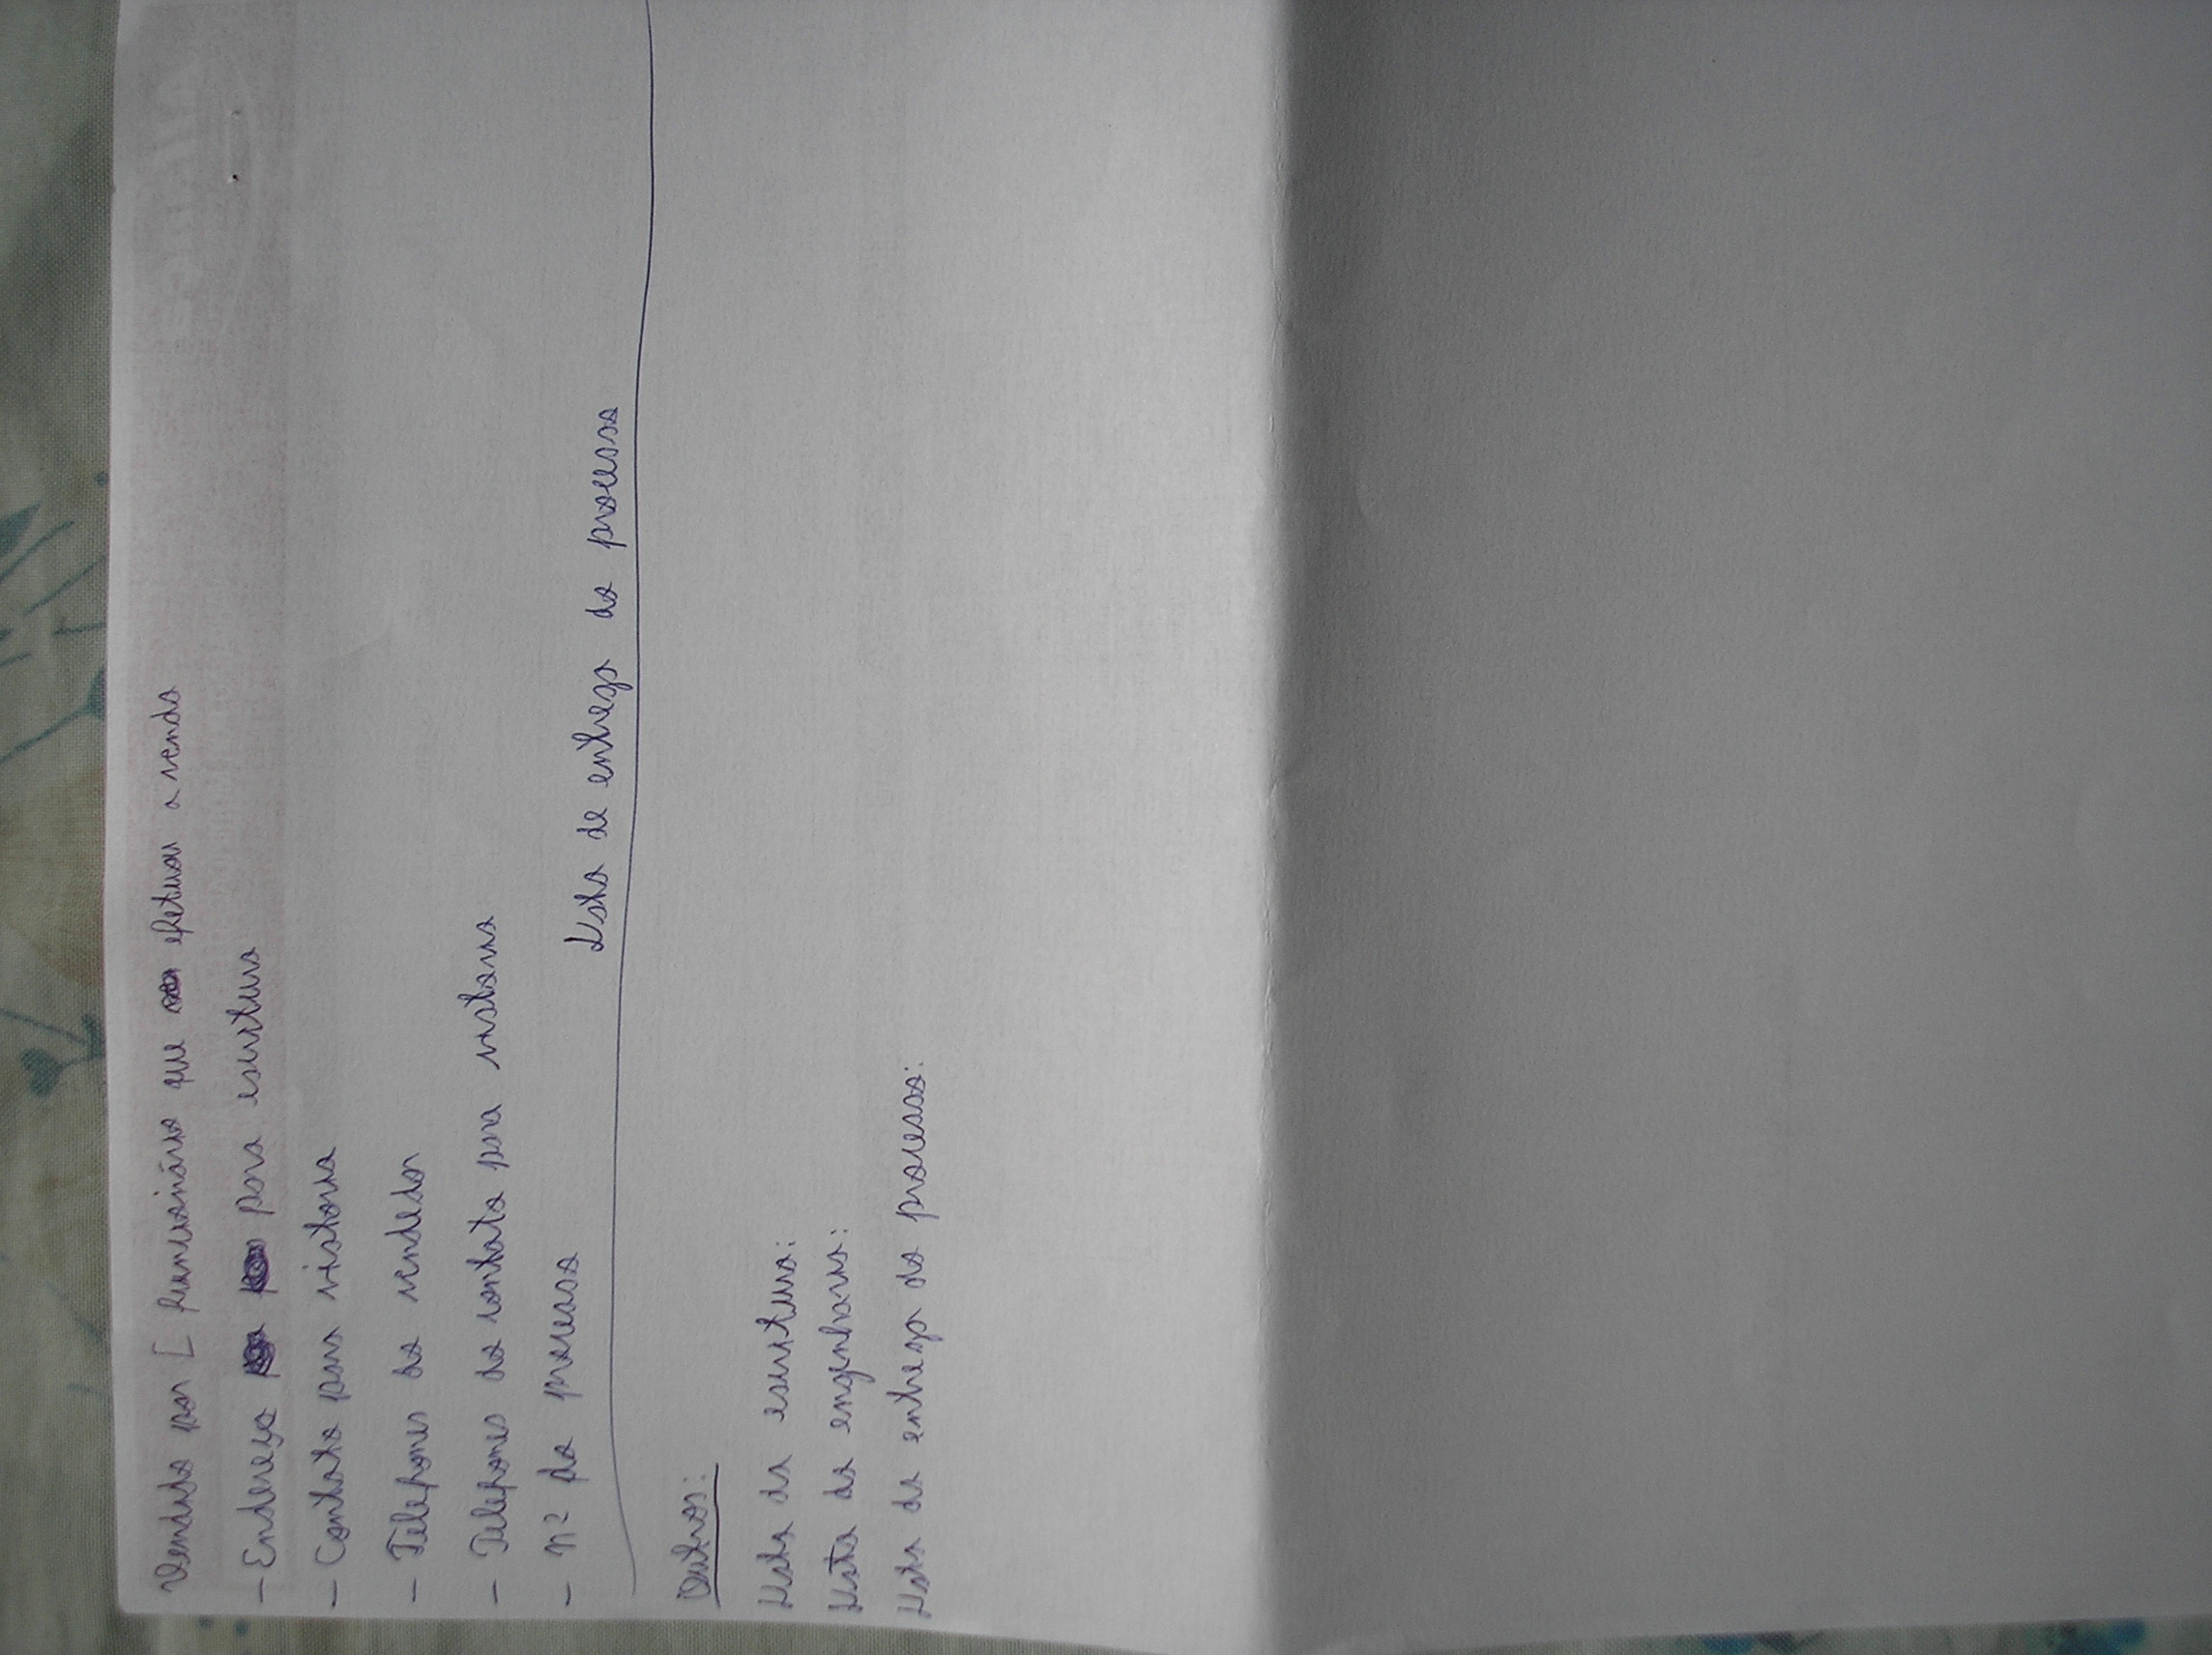 Vendido por [ funcionário que efetuou a venda
- Endereço para escritura
- Contato para vistoria
- Telefones do vendedor
- Telefones do contato para vistoria
- nº do processo
Data de entrega do processo
Outros:
Data da escritura:
Data da engenharia:
Data da entrega do processo: